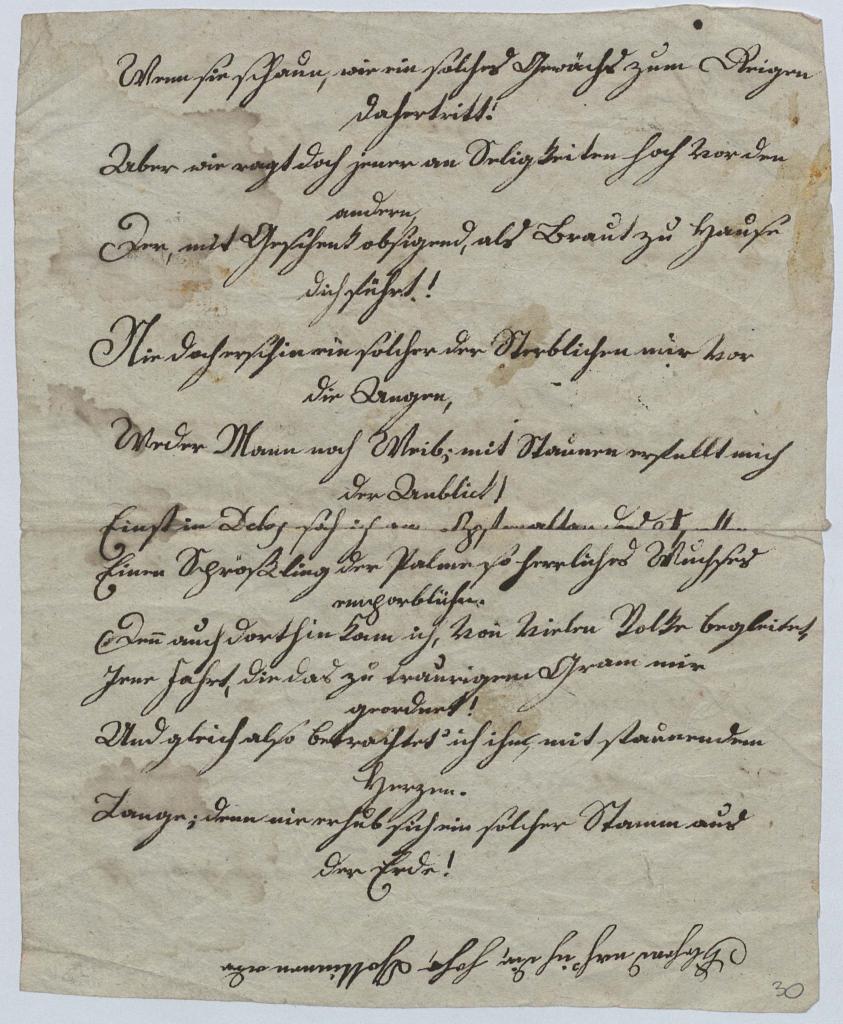 Wenn sie schaun, wie ein solches Gewächs zum Reigen
dahertritt!
Aber wie ragt doch jener an Seligkeiten hoch vor den
andern,
Der, mit Geschenk obsigend, als Braut zu Hause
dich führt!
Nie doch erschin ein solcher der Sterblichen mir vor
die Augen,
Weder Mann noch Weib; mit Staunen erfüllt mich
der Anblick!
Einst in Delos sah ich am
Einen Schrößling der Palme so herrliches Wuchses
emporblühn.
Den̄ auch dorthin kam ich, von vielen Volke begleitet,
Jene Fahrt, die das zu traurigem Gram mir
geordnet!
Und gleich also betrachtet' ich ihn, mit staunendem
Herzen.
Lange; denn nie erhub sich ein solcher Stamm aus
der Erde!
30